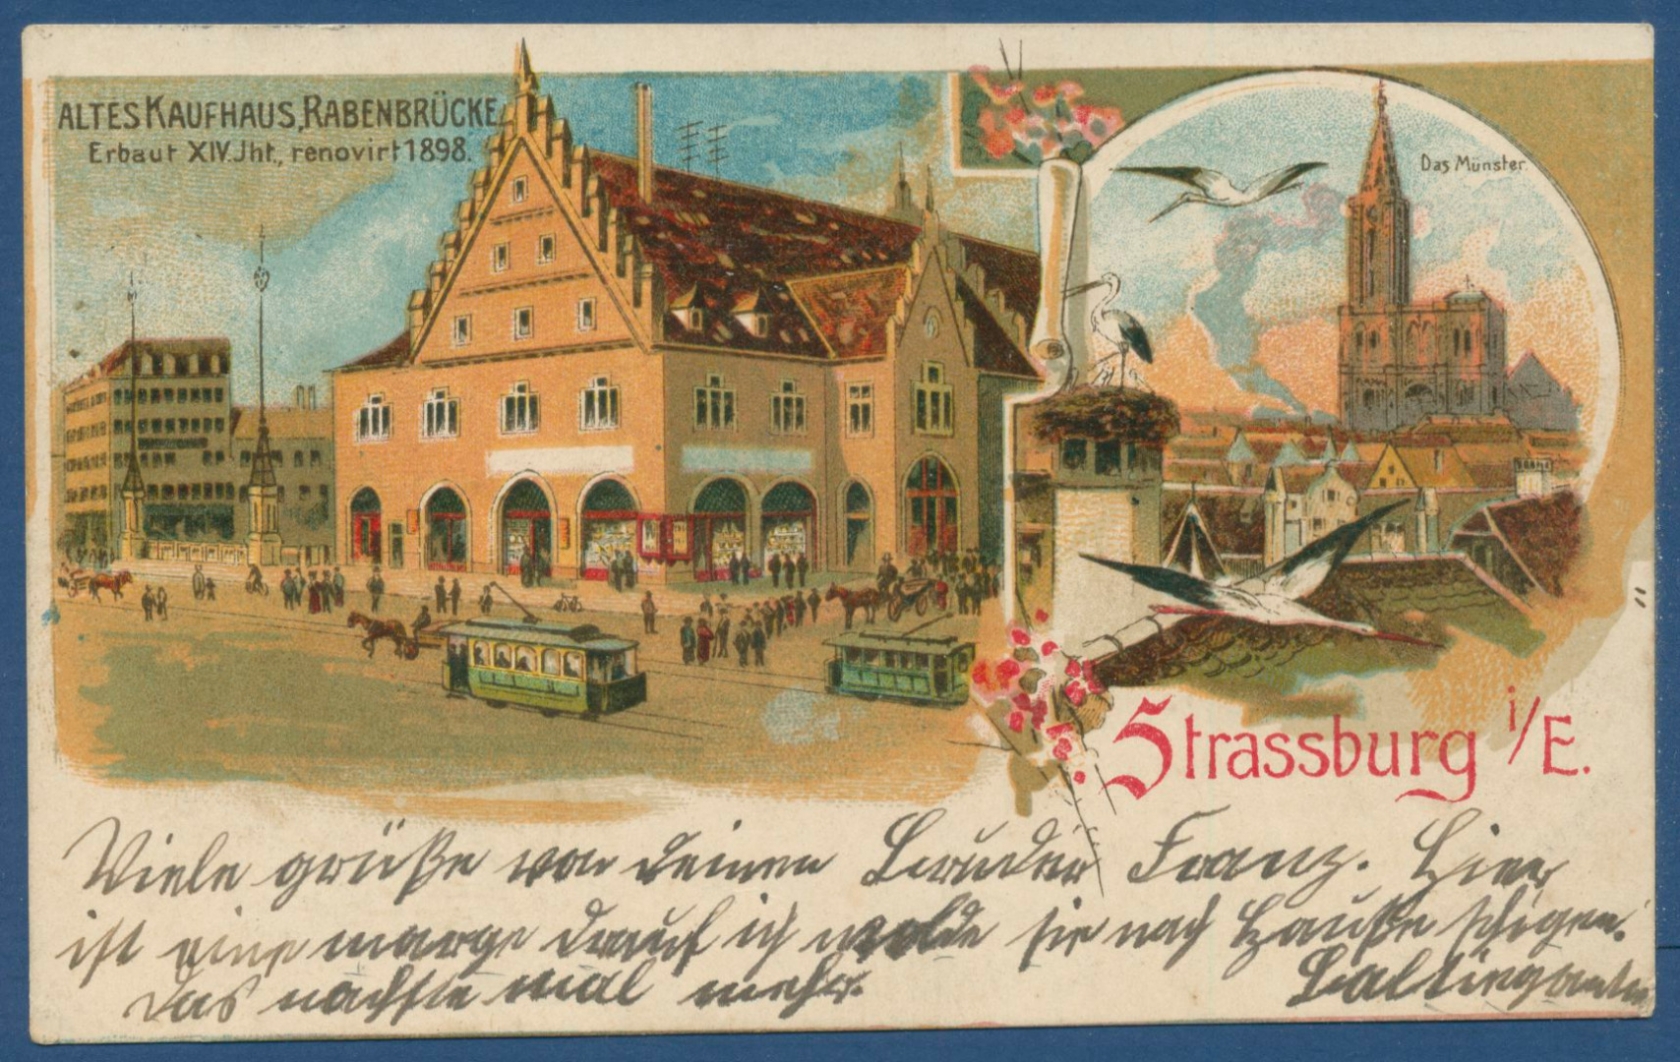 ALTES KAUFHAUS, RABENBRÜCKE
Erbaut XIV. Jht., renovirt 1898.
Das Münster.
Strassburg i/E.
Viele grüße von deinem Bruder Franz. Hier
ist eine marge drauf ich wolde sie nach Hauße schigen.
das nächste mal mehr.